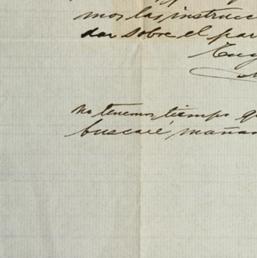 mos las instrucc
dar sobre el par
No tenemos tiempo q
buscaré, mañan